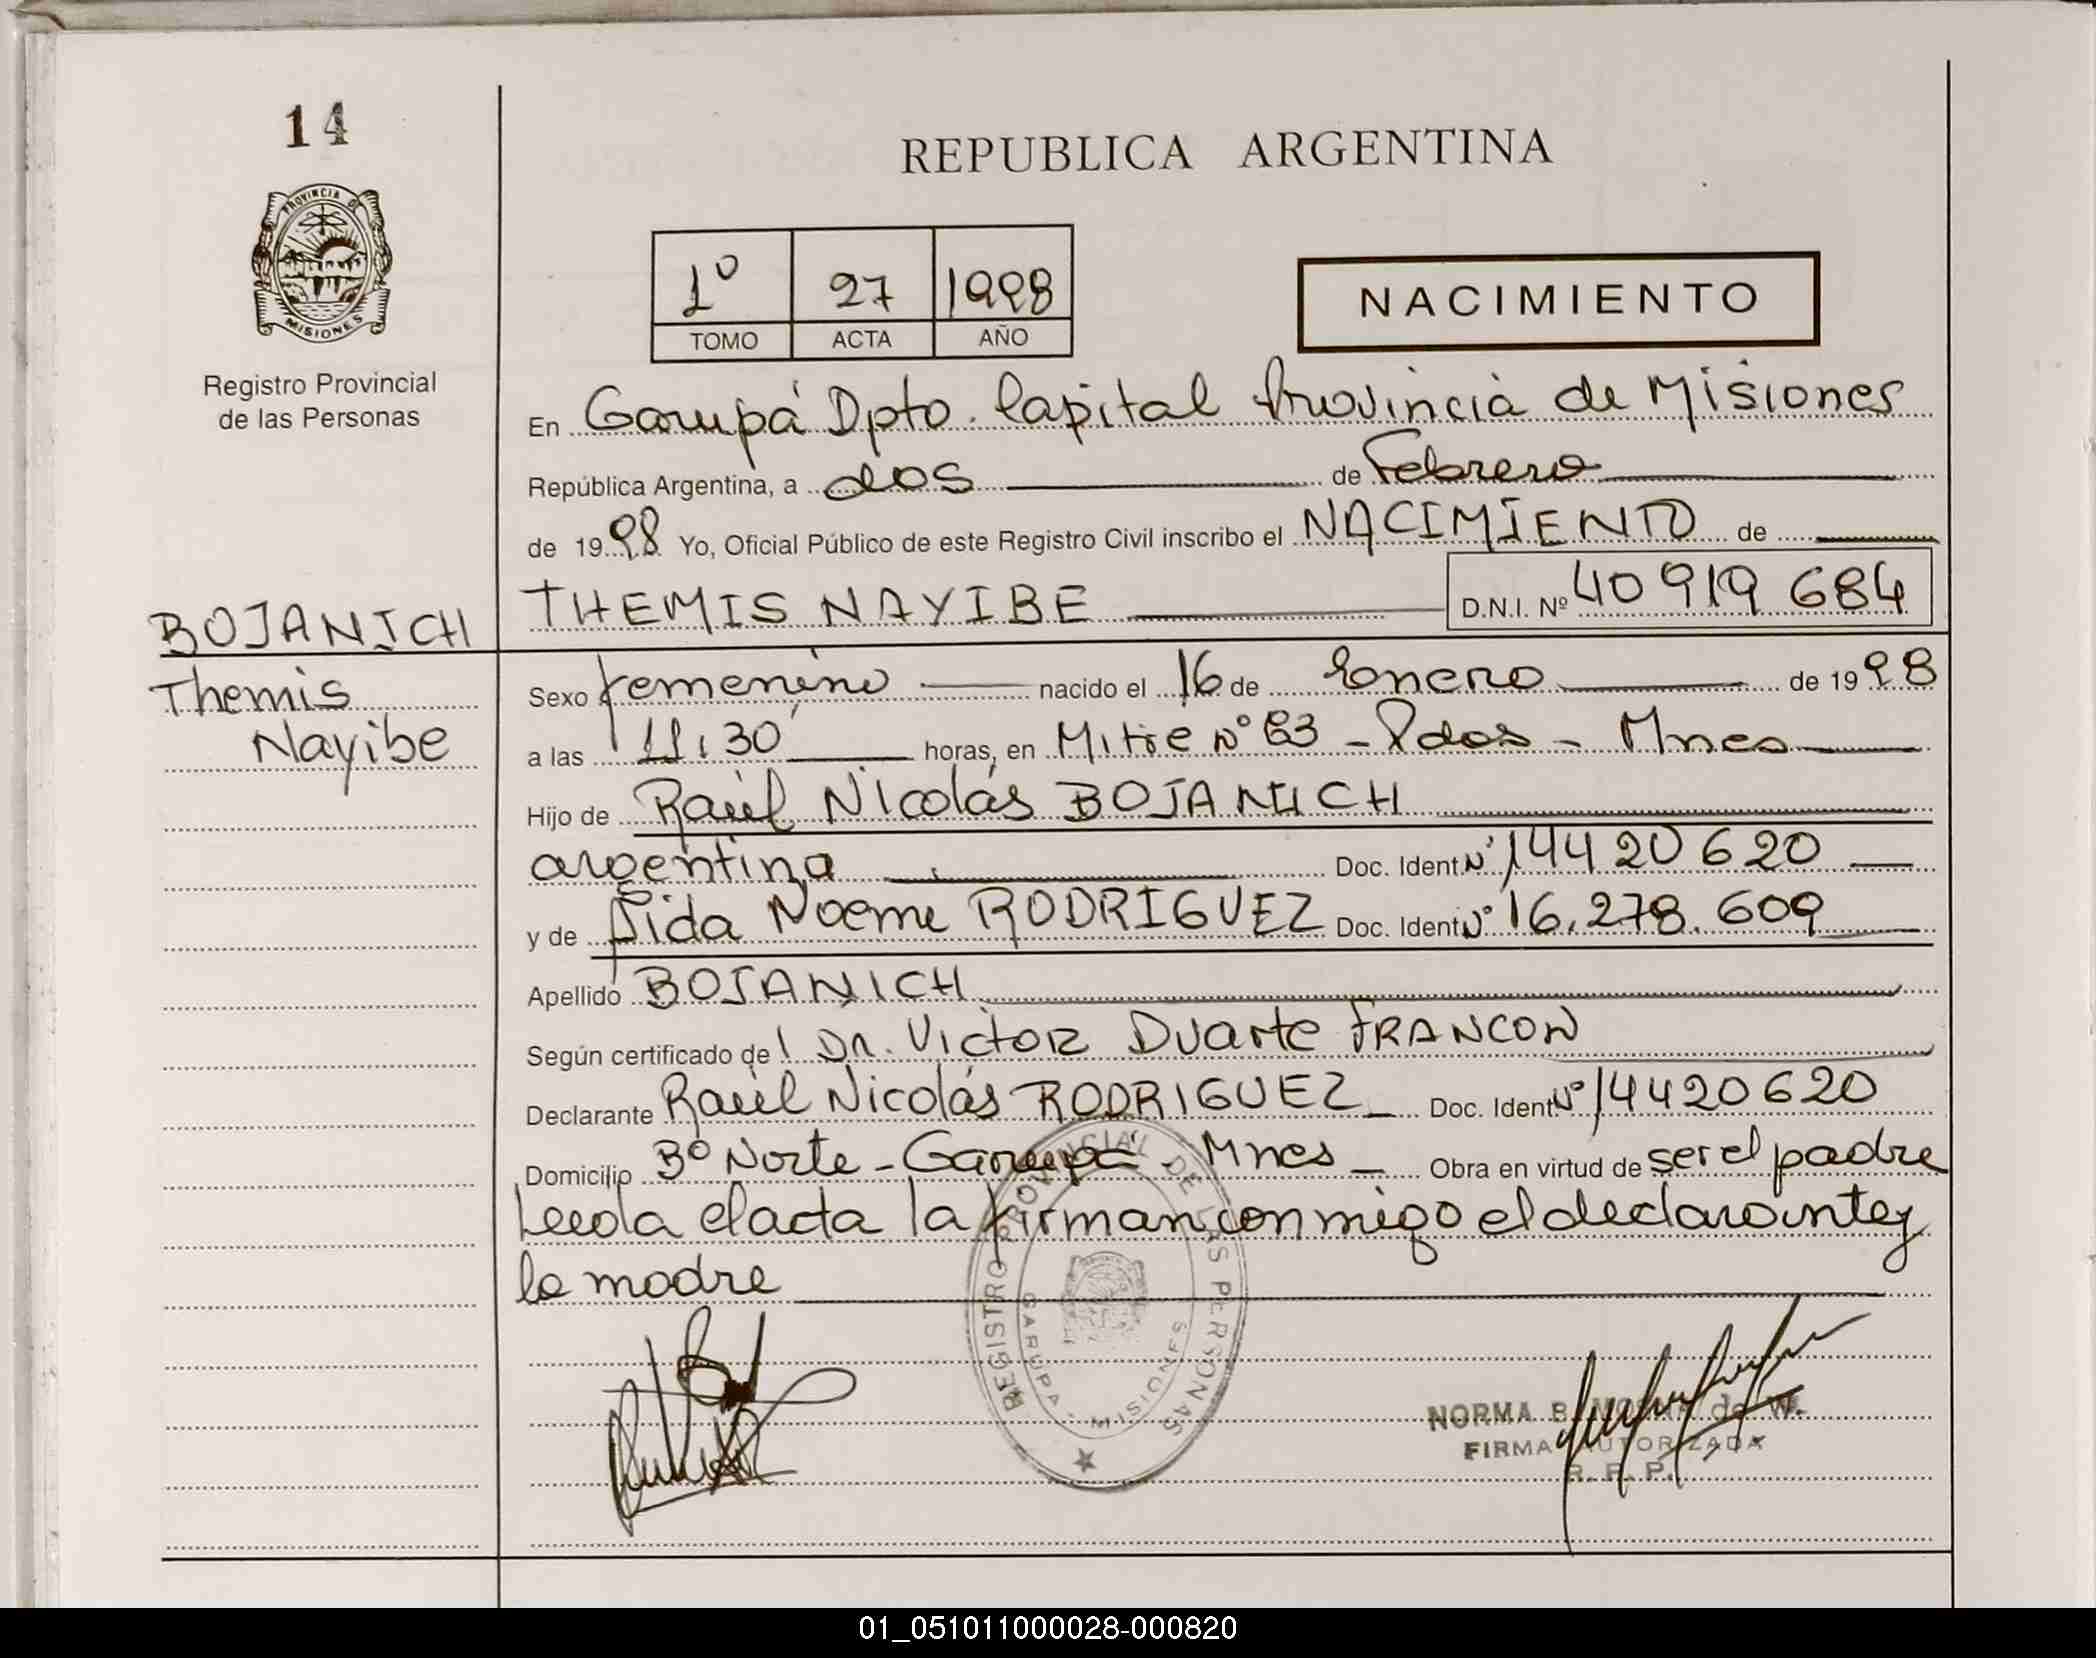 14
PROVINCIA DE
MISIONES
Registro Provincial
de las Personas
REPUBLICA ARGENTINA
1º 27 1998
TOMO ACTA AÑO
NACIMIENTO
En Garupá Dpto. Capital Provincia de Misiones
República Argentina, a dos de Febrero
de 1998 Yo, Oficial Público de este Registro Civil inscribo el NACIMIENTO de
THEMIS NAYIBE D.N.I. Nº 40 919 684
BOJANICH
Themis
Nayibe
Sexo femenino nacido el 16 de Enero de 1998
a las 11,30 horas, en Mitre Nº 63 - Pdas - Mnes
Hijo de Raúl Nicolás BOJANICH
argentina Doc. Ident Nº 14420620
y de Noeme RODRIGUEZ Doc. Ident Nº 16.278.609
Apellido BOJANICH
Según certificado de Dr. Victor Duarte FRANCOW
Declarante Raúl Nicolás RODRIGUEZ Doc. Ident Nº 14420620
Domicilio Bº Norte - Garupá - Mnes Obra en virtud de ser el padre
Leeda el acta la firman conmigo el declarante y
la madre
REGISTRO PROVINCIAL DE LAS PERSONAS
GARUPA - MISIONES
NORMA B. de W.
FIRMA AUTORIZADA
R. P. P.
01_051011000028-000820